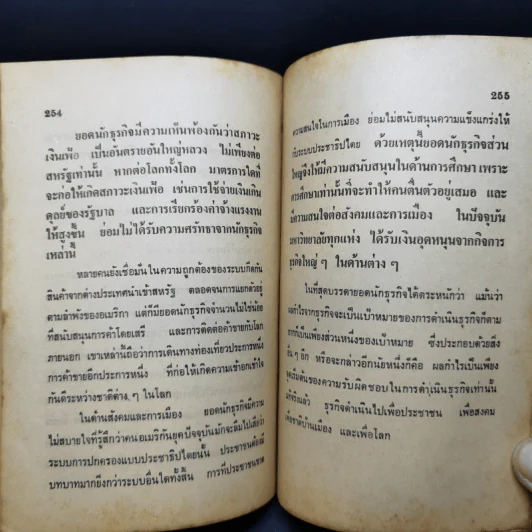 254
ยอดนักธุรกิจมีความเห็นพ้องกันว่าสภาวะ
เงินเฟ้อ เป็นอันตรายอันใหญ่หลวง ไม่เพียงต่อ
สหรัฐเท่านั้น หากต่อโลกทั้งโลก มาตรการใดที่
จะก่อให้เกิดสภาวะเงินเฟ้อ เช่นการใช้จ่ายเงินเกิน
ดุลย์ของรัฐบาล และการเรียกร้องค่าจ้างแรงงาน
ให้สูงขึ้น ย่อมไม่ได้รับความศรัทธาจากนักธุรกิจ
เหล่านี้
หลายคนยังเชื่อมั่นในความถูกต้องของระบบกีดกัน
สินค้าจากต่างประเทศนำเข้าสหรัฐ ตลอดจนการแยกตัวอยู่
ตามลำพังของอเมริกา แต่ก็มียอดนักธุรกิจจำนวนไม่ใช่น้อย
ที่สนับสนุนการค้าโดยเสรี และการติดต่อค้าขายกับโลก
ภายนอก เขาเหล่านี้ถือว่าการเดินทางท่องเที่ยวประการหนึ่ง
การค้าขายอีกประการหนึ่ง ที่ก่อให้เกิดความเข้าอกเข้าใจ
กันดีระหว่างชาติต่าง ๆ ในโลก
ในด้านสังคมและการเมือง ยอดนักธุรกิจมีความ
ไม่สบายใจที่รู้สึกว่าคนอเมริกันยุคปัจจุบันมักจะลืมไปเสียว่า
ระบบการปกครองแบบประชาธิปไตยนั้น ประชาชนต้องมี
บทบาทมากยิ่งกว่าระบบอื่นใดทั้งสิ้น การที่ประชาชนขาด
255
ความสนใจในการเมือง ย่อมไม่สนับสนุนความแข็งแกร่งให้
กับระบบประชาธิปไตย ด้วยเหตุนี้ยอดนักธุรกิจส่วน
ใหญ่จึงให้ความสนับสนุนในด้านการศึกษา เพราะ
การศึกษาเท่านั้นที่จะทำให้คนตื่นตัวอยู่เสมอ และ
มีความสนใจต่อสังคมและการเมือง ในปัจจุบัน
มหาวิทยาลัยทุกแห่ง ได้รับเงินอุดหนุนจากกิจการ
ธุรกิจใหญ่ ๆ ในด้านต่าง ๆ
ในที่สุดบรรดายอดนักธุรกิจได้ตระหนักว่า แม้นว่า
ผลกำไรจากธุรกิจจะเป็นเป้าหมายของการดำเนินธุรกิจก็ตาม
ก็เป็นเพียงส่วนหนึ่งของเป้าหมาย ซึ่งประกอบด้วยสิ่ง
อื่น ๆ อีก หรือจะกล่าวอีกนัยหนึ่งก็คือ ผลกำไรเป็นเพียง
จุดเริ่มต้นของความรับผิดชอบในการดำเนินธุรกิจเท่านั้น
แท้จริงแล้ว ธุรกิจดำเนินไปเพื่อประชาชน เพื่อสังคม
เพื่อชาติบ้านเมือง และเพื่อโลก